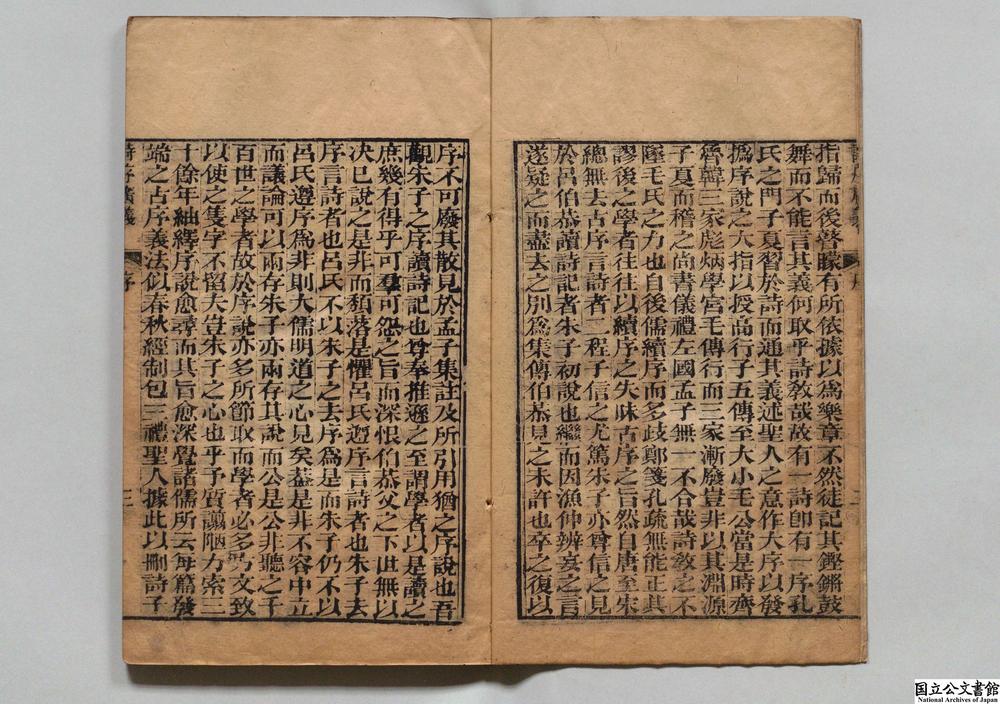 指歸而後瞽矇有所依據以為樂章不然徒記其鏗鏘鼓
舞而不能言其義何取乎詩敎哉故有一詩卽有一序孔
氏之門子夏習於詩而通其義述聖人之意作大序以發
撝序說之大指以授高行子五傳至大小毛公當是時齊
魯韓三家彪炳學宮毛傳行而三家漸廢豈非以其淵源
子夏而稽之尚書儀禮左國孟子無一不合哉詩敎之不
墜毛氏之力也自後儒續序而多歧鄭箋孔疏無能正其
謬後之學者往往以續序之失昧古序之旨然自唐至宋
總無去古序言詩者二程子信之尤篤朱子亦嘗信之見
於呂伯恭讀詩記者朱子初說也繼而因漁仲辨妄之言
遂疑之而盡去之別為集傳伯恭見之未許也卒之復以
序不可廢其散見於孟子集註及所引用猶之序說也吾
觀朱子之序讀詩記也尊奉推遜之至謂學者以是讀之
庶幾有得乎可羣可怨之旨而深恨伯恭父之下世無以
決已說之是非而頹落是懼呂氏遵序言詩者也朱子去
序言詩者也呂氏不以朱子之去序為是而朱子仍不以
呂氏遵序為非則大儒明道之心見矣蓋是非不容中立
而議論可以兩存朱子亦兩存其說而公是公非聽之千
百世之學者故於序說亦多所節取而學者必多為文致
以使之隻字不留夫豈朱子之心也乎予質譾陋力索三
十餘年紬繹序說愈尋而其旨愈深覺諸儒所云每篇發
端之古序義法似春秋經制包三禮聖人據此以刪詩子
詩序廣義 序 三
国立公文書館
National Archives of Japan